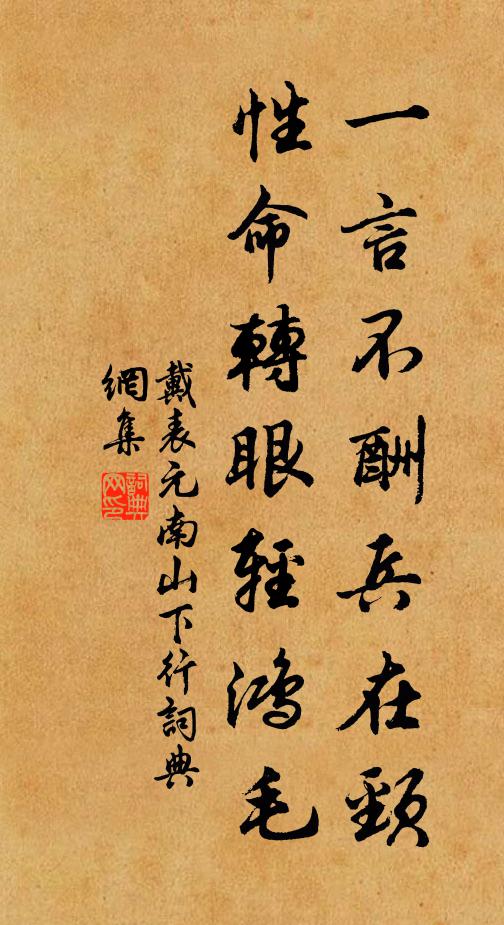 一言不酬兵在頸
性命轉眼輕鴻毛
戴表元南山下行詞典
網集
詞典网印